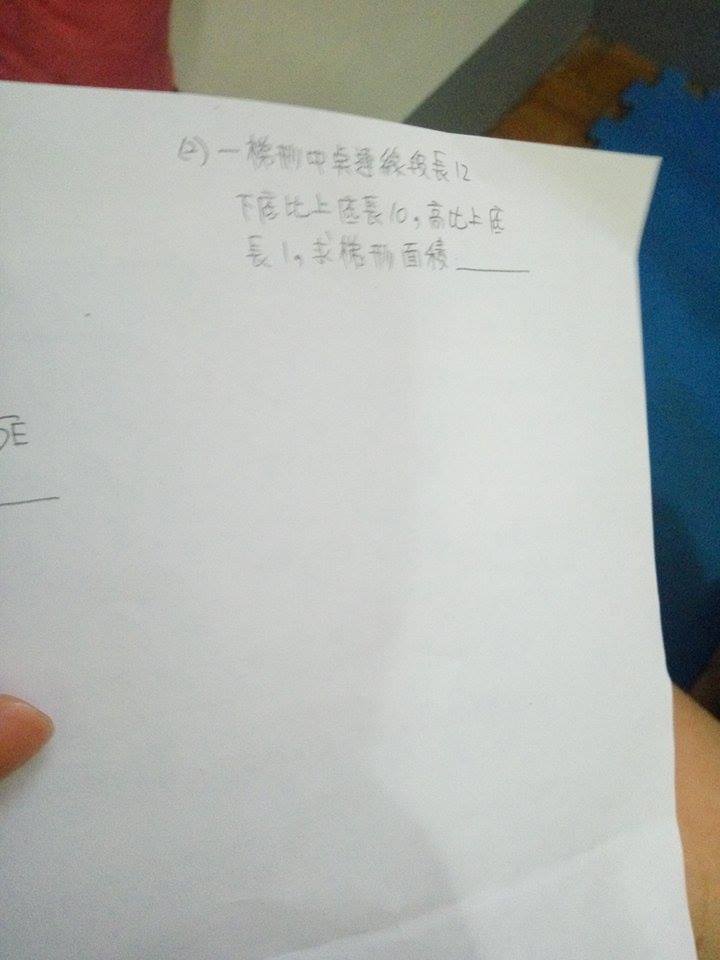 (2) 一梯形中点連線段長12
下底比上底長10,高比上底
長1,求梯形面積____
DE